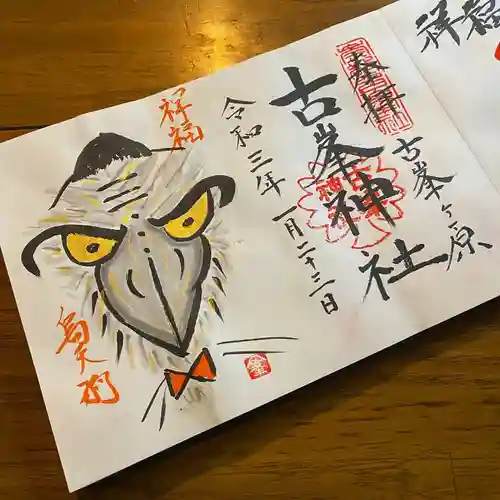 奉拝
古峯ヶ原
古峯神社
令和三年 一月二十三日
祥福
烏天狗
祥福